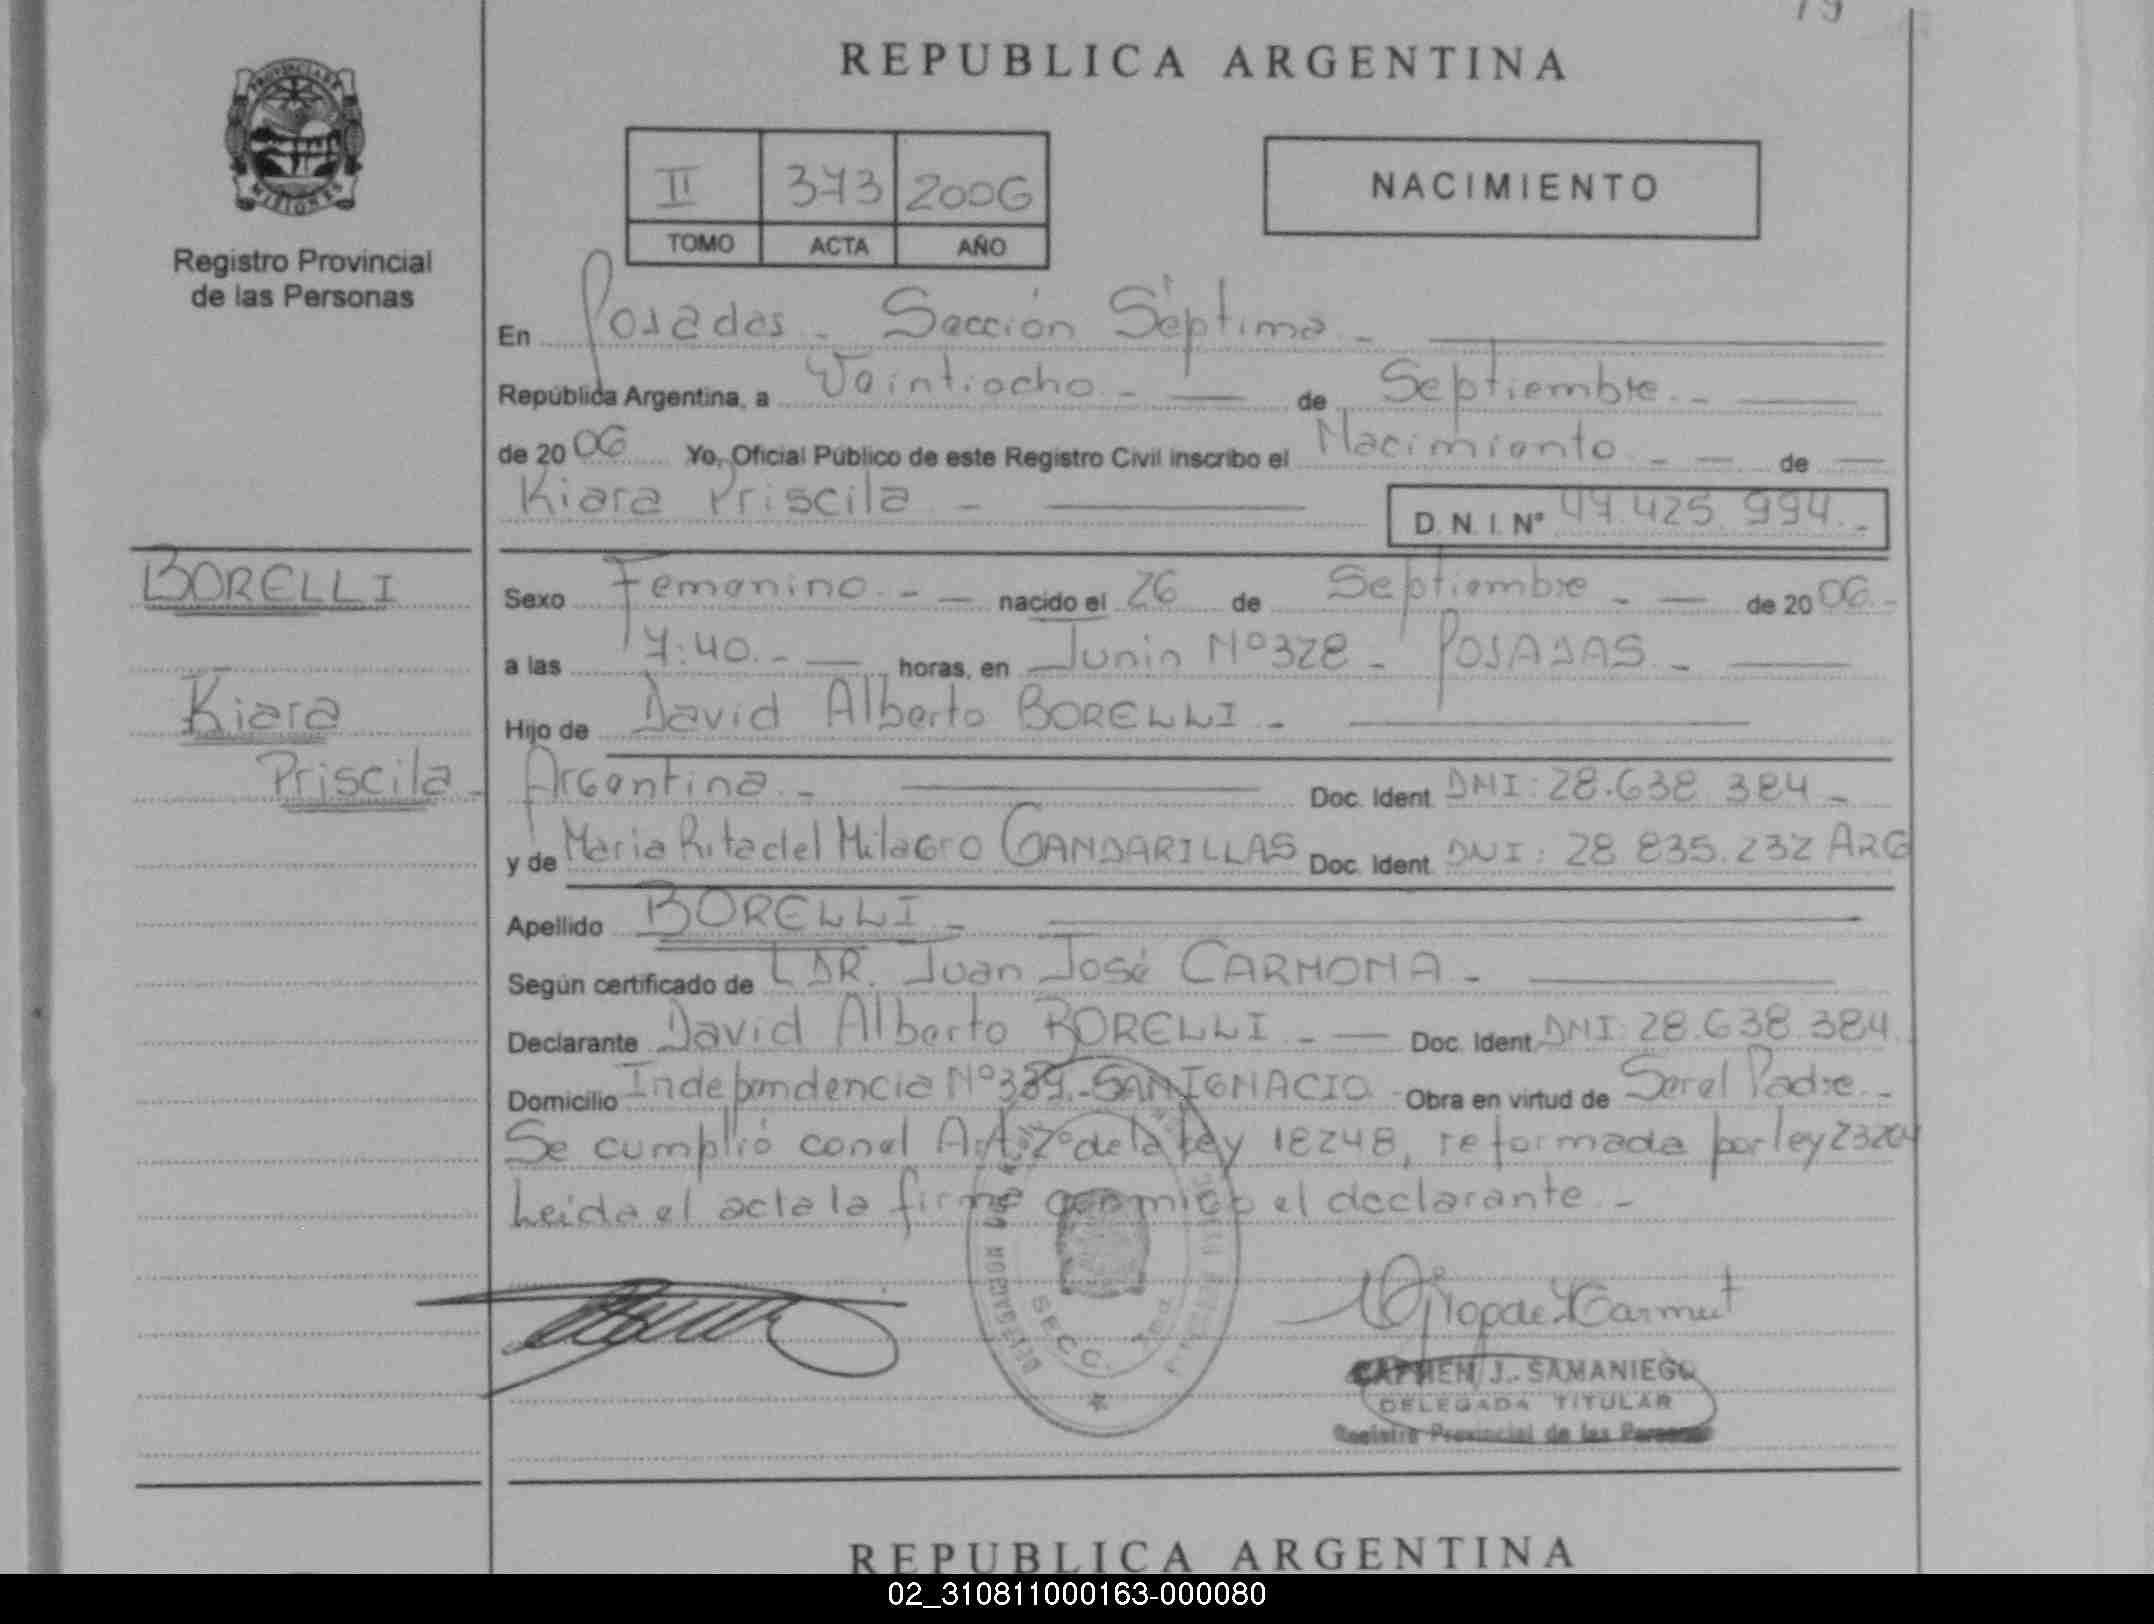 19
REPUBLICA ARGENTINA
PROVINCIA DE
MISIONES
Registro Provincial
de las Personas
II 373 2006
TOMO ACTA AÑO
NACIMIENTO
En Posadas - Sección Séptima -
República Argentina, a Veintiocho - de Septiembre -
de 2006 Yo, Oficial Público de este Registro Civil inscribo el Nacimiento - de
Kiara Priscila - D. N. I. Nº 47.425.994.-
BORELLI
Kiara
Priscila -
Sexo Femenino - nacido el 26 de Septiembre - de 2006.-
a las 17:40.- horas, en Junin Nº 328 - POSADAS -
Hijo de David Alberto BORELLI -
Argentina - Doc. Ident. DNI: 28.638 384 -
y de Maria Rita del Milagro GANDARILLAS Doc. Ident. DNI: 28 835.232 ARG
Apellido BORELLI -
Según certificado de DR. Juan José CARMONA -
Declarante David Alberto BORELLI - Doc. Ident. DNI: 28.638.384
Domicilio Independencia Nº 389 - SAN IGNACIO Obra en virtud de Ser el Padre -
Se cumplió con el Art. 2º de la Ley 18248, reformada por ley 23264
Leida el acta la firma conmigo el declarante -
SECC. 7ma
CARMEN J. SAMANIEGO
DELEGADA TITULAR
Registro Provincial de las Personas
REPUBLICA ARGENTINA
02_310811000163-000080